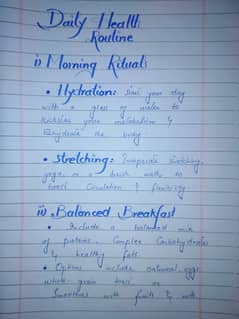 Daily Health
Routine
i) Morning Rituals
• Hydration: Start your day
with a glass of water to
kickstart your metabolism &
Rehydrate the body
• Stretching: Incorporate stretching,
yoga, or a brisk walk to
boost Circulation & flexibility.
ii) Balanced Breakfast
• Include a balanced mix
of proteins, Complex Carbohydrates
& healthy fats.
• Options include oatmeal, eggs,
whole grain toast, or
Smoothies with fruits & nuts